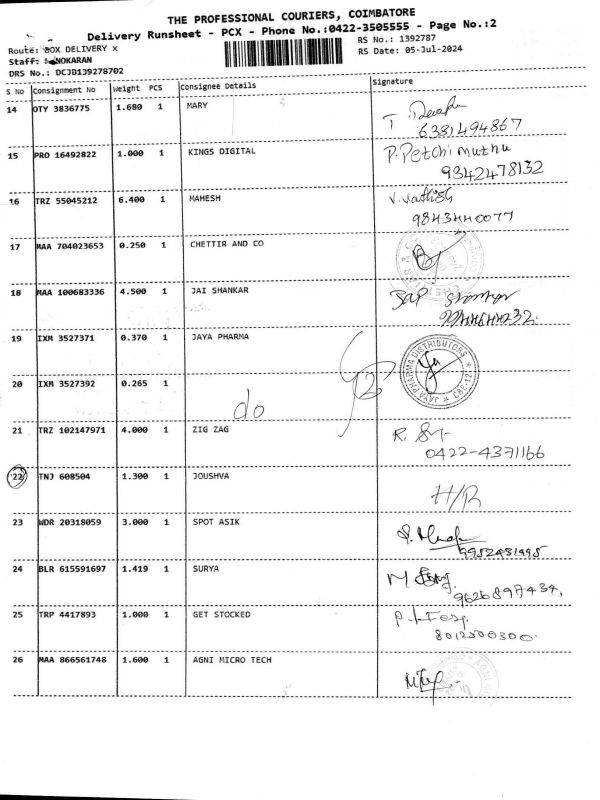 THE PROFESSIONAL COURIERS, COIMBATORE
Delivery Runsheet - PCX - Phone No.:0422-3505555 - Page No.:2
Route: BOX DELIVERY x
RS No.: 1392787
Staff: NOKARAN
RS Date: 05-Jul-2024
DRS No.: DCJD139278702
S No Consignment No Weight PCS Consignee Details Signature
14 OTY 3836775 1.680 1 MARY
T
6381494867
15 PRO 16492822 1.000 1 KINGS DIGITAL P. Petchimuthu
9342478132
16 TRZ 55045212 6.400 1 MAHESH
9843440077
17 MAA 704023653 0.250 1 CHETTIR AND CO
18 MAA 100683336 4.500 1 JAI SHANKAR
19 IXM 3527371 0.370 1 JAYA PHARMA
JAYA PHARMA DISTRIBUTORS CBE-12
20 IXM 3527392 0.265 1 do
21 TRZ 102147971 4.000 1 ZIG ZAG R
0422-4371166
22 TNJ 608504 1.300 1 JOUSHVA
H/R
23 WDR 20318059 3.000 1 SPOT ASIK
9952431995
24 BLR 615591697 1.419 1 SURYA M
9626897434.
25 TRP 4417893 1.000 1 GET STOCKED
8012500300.
26 MAA 866561748 1.600 1 AGNI MICRO TECH